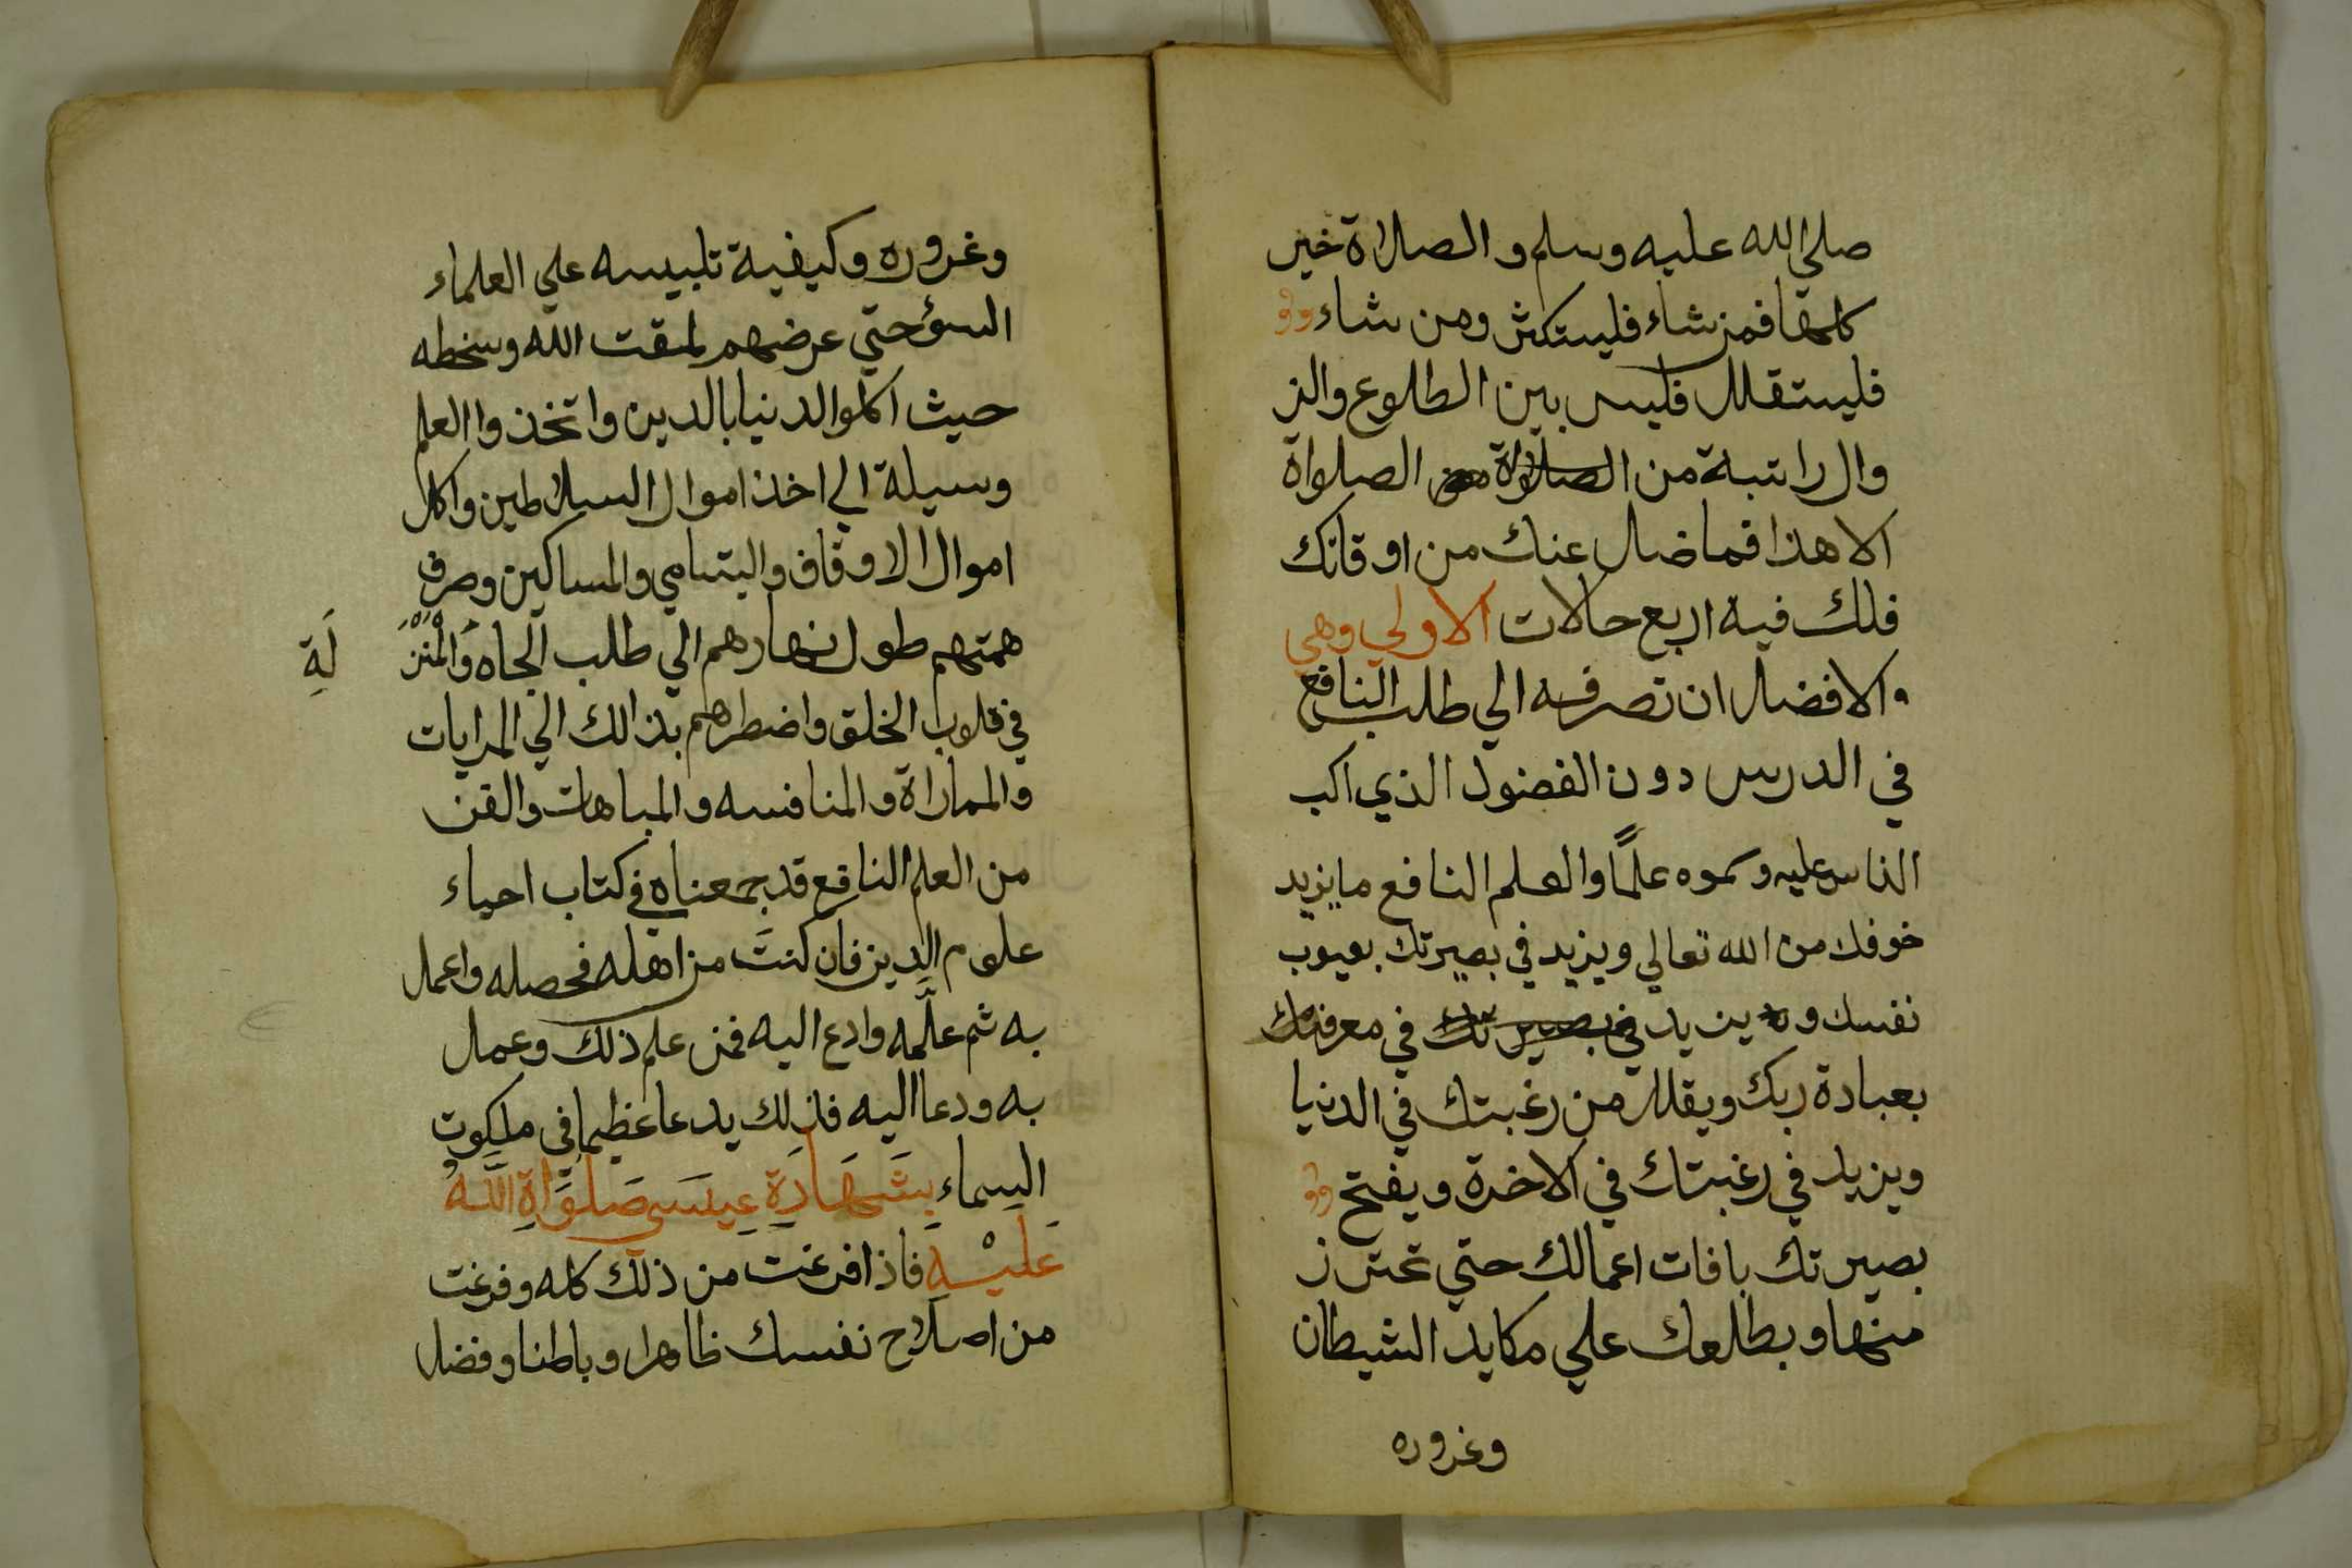 صلي الله عليه وسلم والصلاة خير
كلها فمن شاء فليستكثر ومن شاء
فليستقلل فليس بين الطلوع والز
وال راتبة من الصلاة من الصلواة
الا هذا فما ضل عنك من اوقاتك
فلك فيه اربع حالات الاولي وهي
والافضل ان تصرفه الي طلب النافع
في الدرس دون الفضول الذي اكب
الناس عليه وسموه علمًا والعلم النافع ما يزيد
خوفك من الله تعالي ويزيد في بصيرتك بعيوب
نفسك و يزيد في بصيرتك في معرفتك
بعبادة ربك ويقلل من رغبتك في الدنيا
ويزيد في رغبتك في الاخرة ويفتح
بصيرتك بافات اعمالك حتي تحترز
منها ويطلعك علي مكايد الشيطان
وغروره
وغروره وكيفية تلبيسه علي العلماء
السؤ حتي عرضهم لمقت الله وسخطه
حيث اكلوا الدنيا بالدين واتخذوا العلم
وسيلة الي اخذ اموال السلاطين واكل
اموال الاوقاف واليتامي والمساكين وصرف
همتهم طول نهارهم الي طلب الجاه وَالْمَنْزِ
لَةِ
في قلوب الخلق واضطرهم بذالك الي المرايات
والمماراة والمنافسه والمباهات والفن
من العلم النافع قد جمعناه في كتاب احياء
علوم الدين فان كنت من اهله فحصله واعمل
به ثم علّمه وادع اليه فمن علم ذلك وعمل
به ودعا اليه فذلك يدعا عظيما في ملكوت
السماء بِشَهَادَةِ عِيسَي صَلَوَاةُ اللَّهُ
عَلَيْهِ فاذا فرغت من ذلك كله وفرغت
من اصلاح نفسك ظاهرا وباطنا وفضل